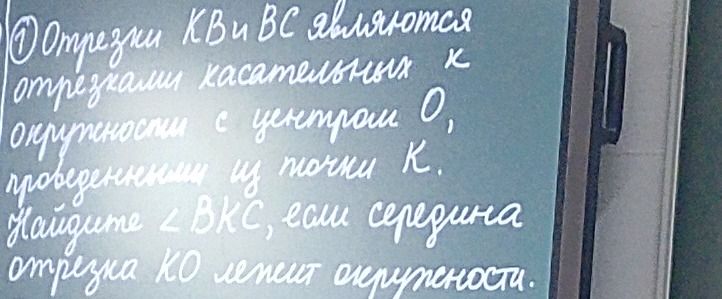 ① Отрезки КВ и ВС являются
отрезками касательных к
окружности с центром О,
проведенными из точки К.
Найдите ∠ВКС, если середина
отрезка КО лежит окружности.